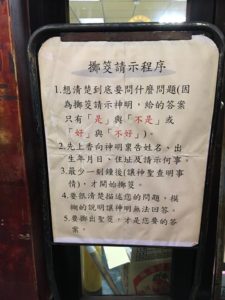 擲筊請示程序
1.想清楚到底要問什麼問題(因
為擲筊請示神明，給的答案
只有「是」與「不是」或
「好」與「不好」)。
2.先上香向神明稟告姓名、出
生年月日、住址及請示何事。
3.最少一刻鐘後(讓神聖查明事
情)，才開始擲筊。
4.要很清楚描述您的問題，模
糊的說明讓神明無法回答。
5.要擲出聖筊，才是您要的答
案。